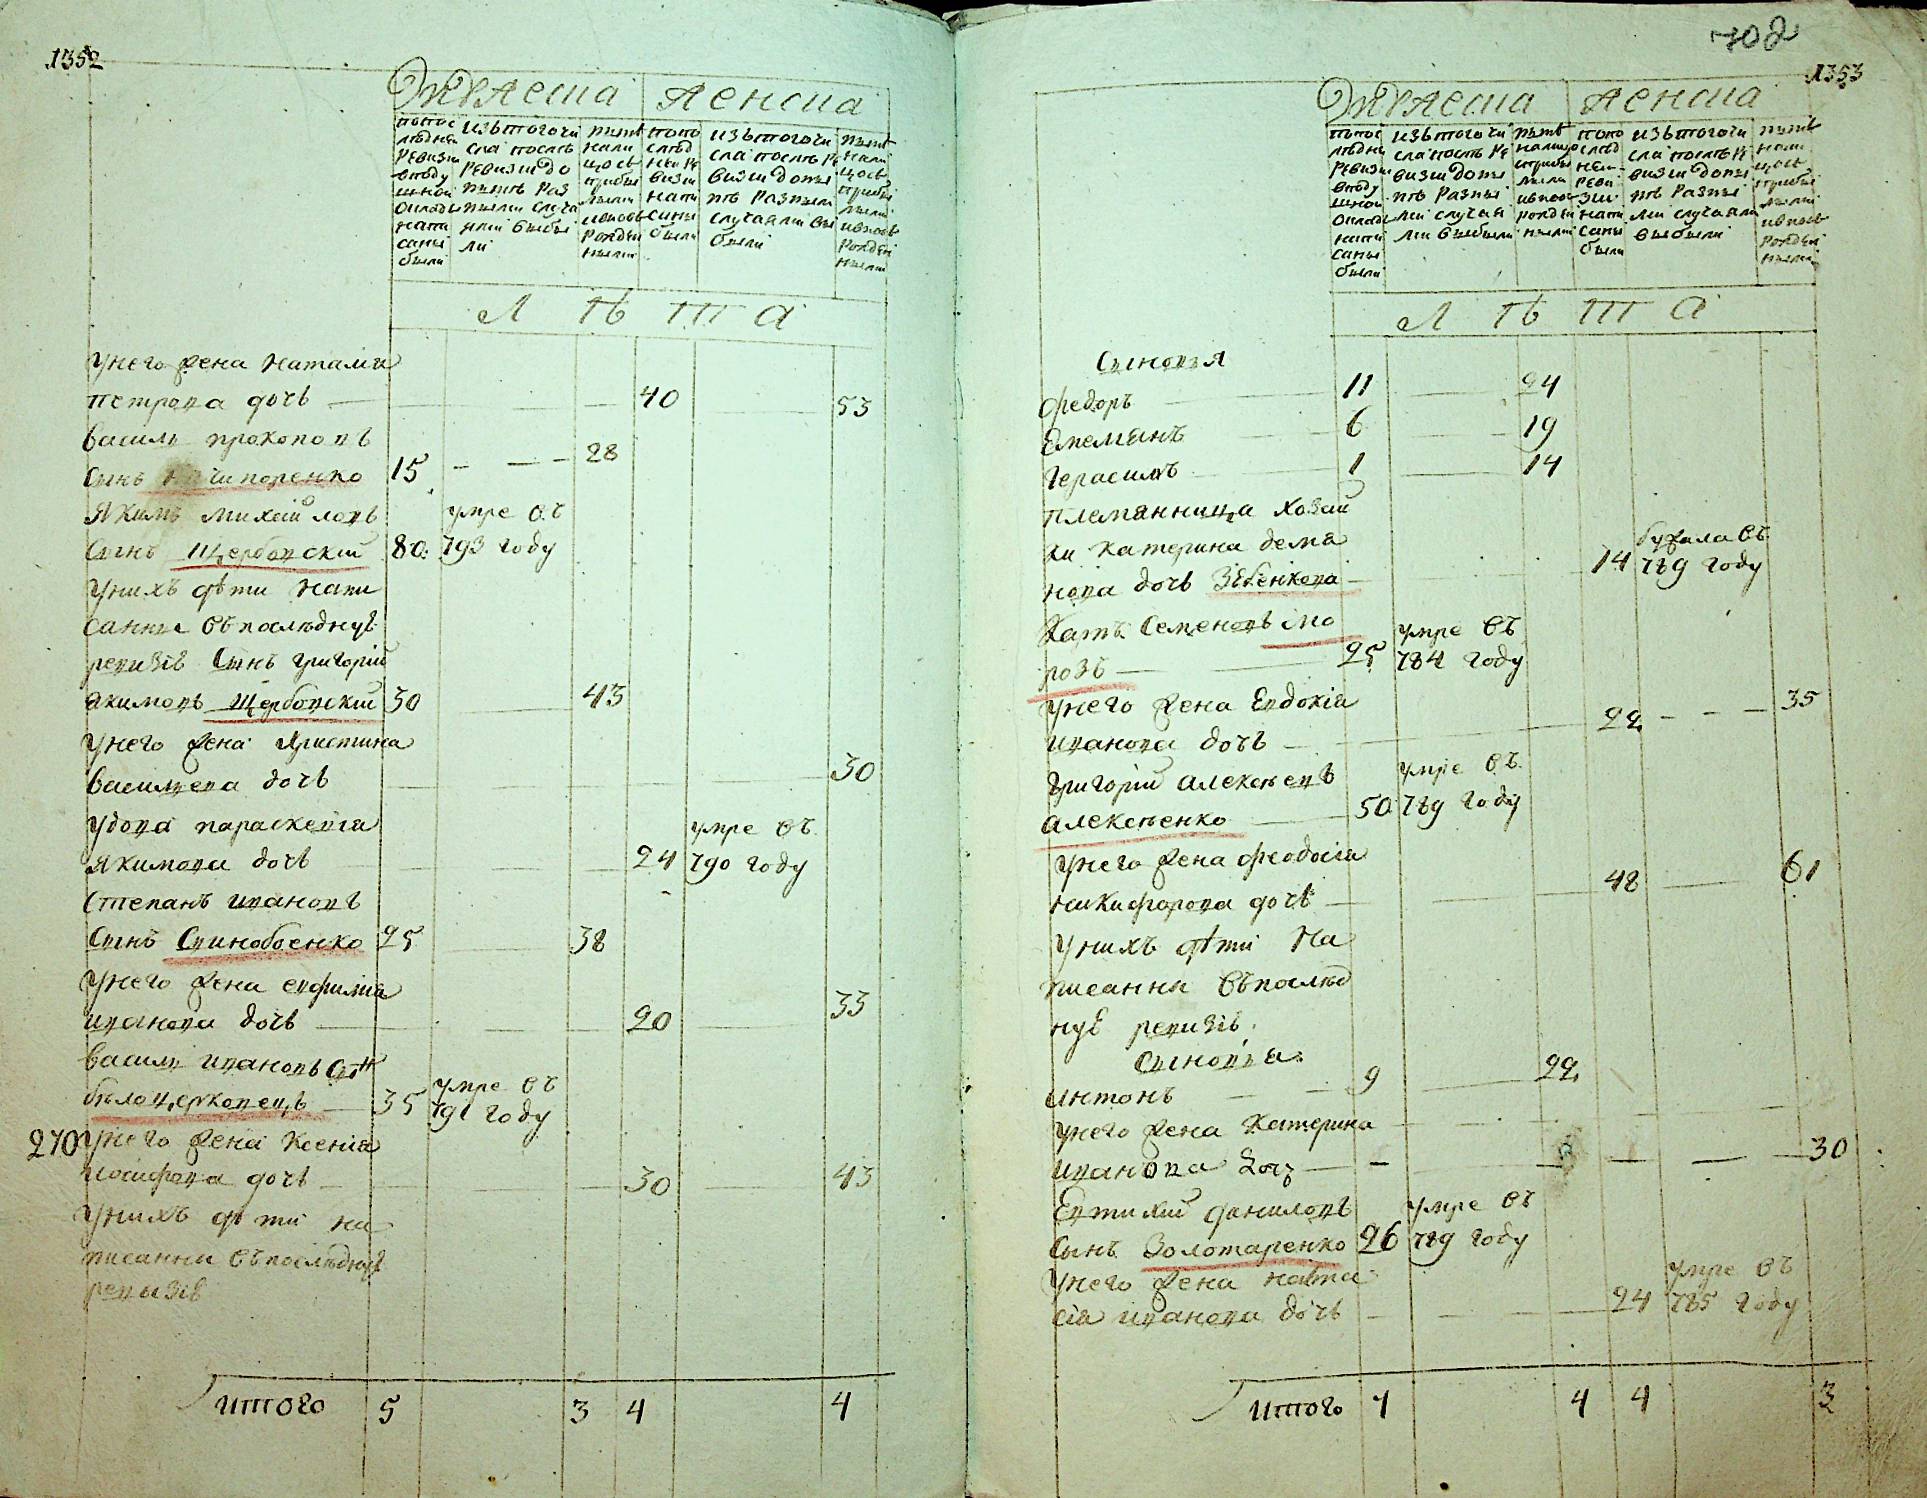 1352
Мужеска женска
попос
лѣдней
Ревизіи
въподу
шной
окладъ
напи
саны
были
изътогочи
сла послѣ
Ревизіи до
нынѣ Раз
ными случа
ями выбы
ли
нынѣ
нали
цось
прибы
лыми
ивновь
Рожден
ными
попо
слѣд
ней Ре
визіи
напи
саны
были
изътогочи
сла послѣ Ре
визіи доны
нѣ Разными
случаями вы
были
нынѣ
нали
цось
прибы
лыми
ивновь
Рожден
ными
Л Ѣ Т А
унего жена Наталія
петрова дочь 40 53
василь прокоповъ
сынъ Ничипоренко 15 28
Якимъ михайловъ умре въ
сынъ Щербовскій 80 793 году
унихъ дѣти напи
санныє въпослѣднуѣ
ревизіѣ сынъ григорій
якимовъ Щербовскій 30 43
унего жена Христина
васильева дочь 30
удова параскевія умре въ
якимова дочь 24 790 году
степанъ ивановъ
сынъ Свинобоенко 25 38
унего жена евфимія
иванова дочь 20 33
василь ивановъ сынъ умре въ
бѣлоцерковецъ 35 791 году
270 унего жена Ксенія
иосифова дочь 30 43
унихъ дѣти на
писанни въпослѣднуѣ
ревизіѣ
итого 5 3 4 4
702
1353
Мужеска женска
попос
лѣдней
Ревизіи
въподу
шной
окладъ
напи
саны
были
изътогочи
сла послѣ Ре
визіи доны
нѣ Разны
ми случая
ми выбыли
нынѣ
налицо
прибы
лыми
ивновь
рожден
ными
попо
слѣд
ней
Реви
зіи
напи
саны
были
изътогочи
сла послѣ Ре
визіи доны
нѣ Разны
ми случаями
выбыли
нынѣ
нали
цось
прибы
лыми
ивновь
Рожден
ными
Л Ѣ Т А
Сыновья
Федоръ 11 24
Емельянъ 6 19
Герасимъ 1 14
племянница хозяй
ки Катерина демя бужала въ
нова дочь Зѣбенкова 14 789 году
Кать Семеновъ Мо умре въ
розъ 25 784 году
унего жена Евдокія
иванова дочь 22 35
григорій алексѣевъ умре въ
алексѣенко 50 789 году
унего жена феодосія
никифорова дочь 48 61
унихъ дѣти На
писанни въпослѣд
нуѣ ревизіѣ
сыновья
Антонъ 9 22
унего жена Катерина
иванова дочь 30
Евтихій даниловъ умре въ
сынъ Золотаренко 26 789 году
унего жена наста умре въ
сія иванова дочь 24 785 году
итого 7 4 4 3